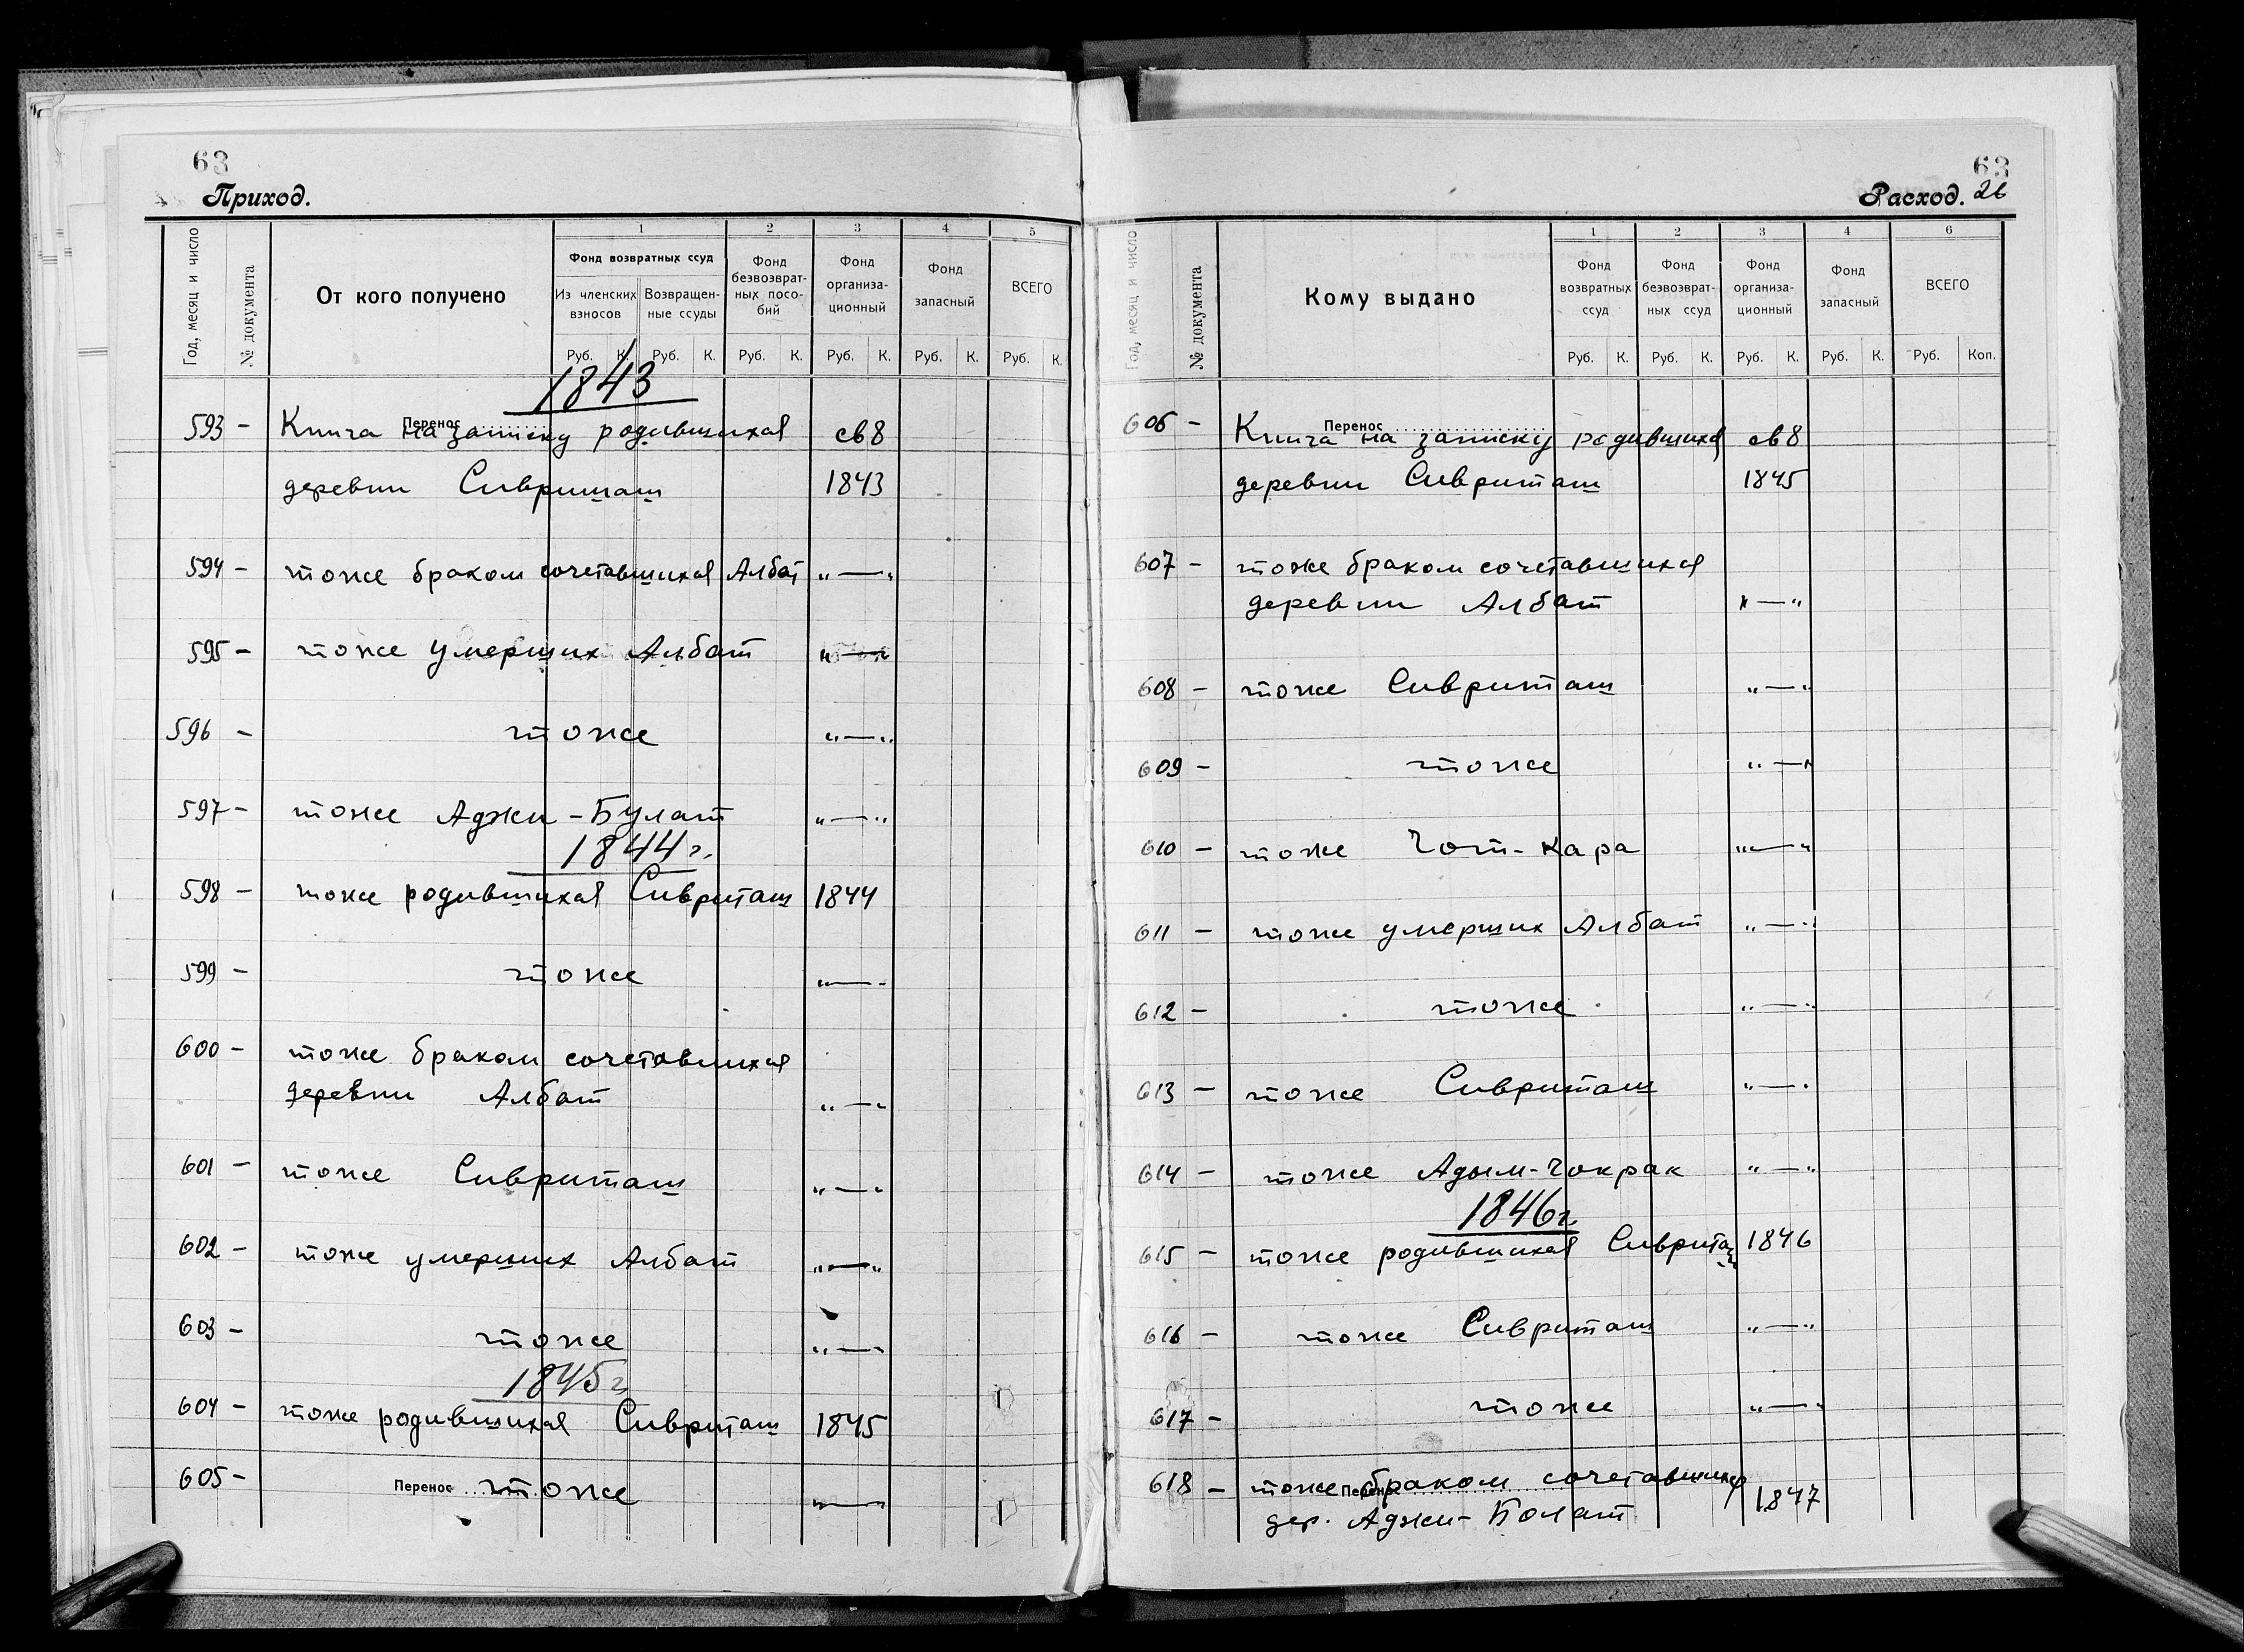 63
Приход.
Год, месяц и число
№ документа
От кого получено
1
Фонд возвратных ссуд
Из членских взносов
Возвращен-
ные ссуды
2
Фонд
безвозврат-
ных посо-
бий
3
Фонд
организа-
ционный
4
Фонд
запасный
5
ВСЕГО
Руб. К. Руб. К. Руб. К. Руб. К. Руб. К. Руб. К.
1843
Перенос
593 - Книга на записку родившихся св8
деревни Сивриташ 1843
594 - тоже браком сочетавшихся Албат „—„
595 - тоже умерших Албат „—„
596 - тоже „—„
597 - тоже Аджи-Булат „—„
1844г.
598 - тоже родившихся Сивриташ 1844
599 - тоже „—„
600 - тоже браком сочетавшихся
деревни Албат „—„
601 - тоже Сивриташ „—„
602 - тоже умерших Албат „—„
603 - тоже „—„
1845г
604 - тоже родившихся Сивриташ 1845
605 - Перенос тоже „—„
63
Расход. 26
Год, месяц и число
№ документа
Кому выдано
1
Фонд
возвратных
ссуд
2
Фонд
безвозврат-
ных ссуд
3
Фонд
организа-
ционный
4
Фонд
запасный
6
ВСЕГО
Руб. К. Руб. К. Руб. К. Руб. К. Руб. Коп.
Перенос
606 - Книга на записку родившихся св8
деревни Сивриташ 1845
607 - тоже браком сочетавшихся
деревни Албат „—„
608 - тоже Сивриташ „—„
609 - тоже „—„
610 - тоже Чот-кара „—„
611 - тоже умерших Албат „—„
612 - тоже „—„
613 - тоже Сивриташ „—„
614 - тоже Адым-Чокрак „—„
1846г.
615 - тоже родившихся Сивриташ 1846
616 - тоже Сивриташ „—„
617 - тоже „—„
618 - тоже браком сочетавшихся
Перенос
дер. Аджи-Болат 1847